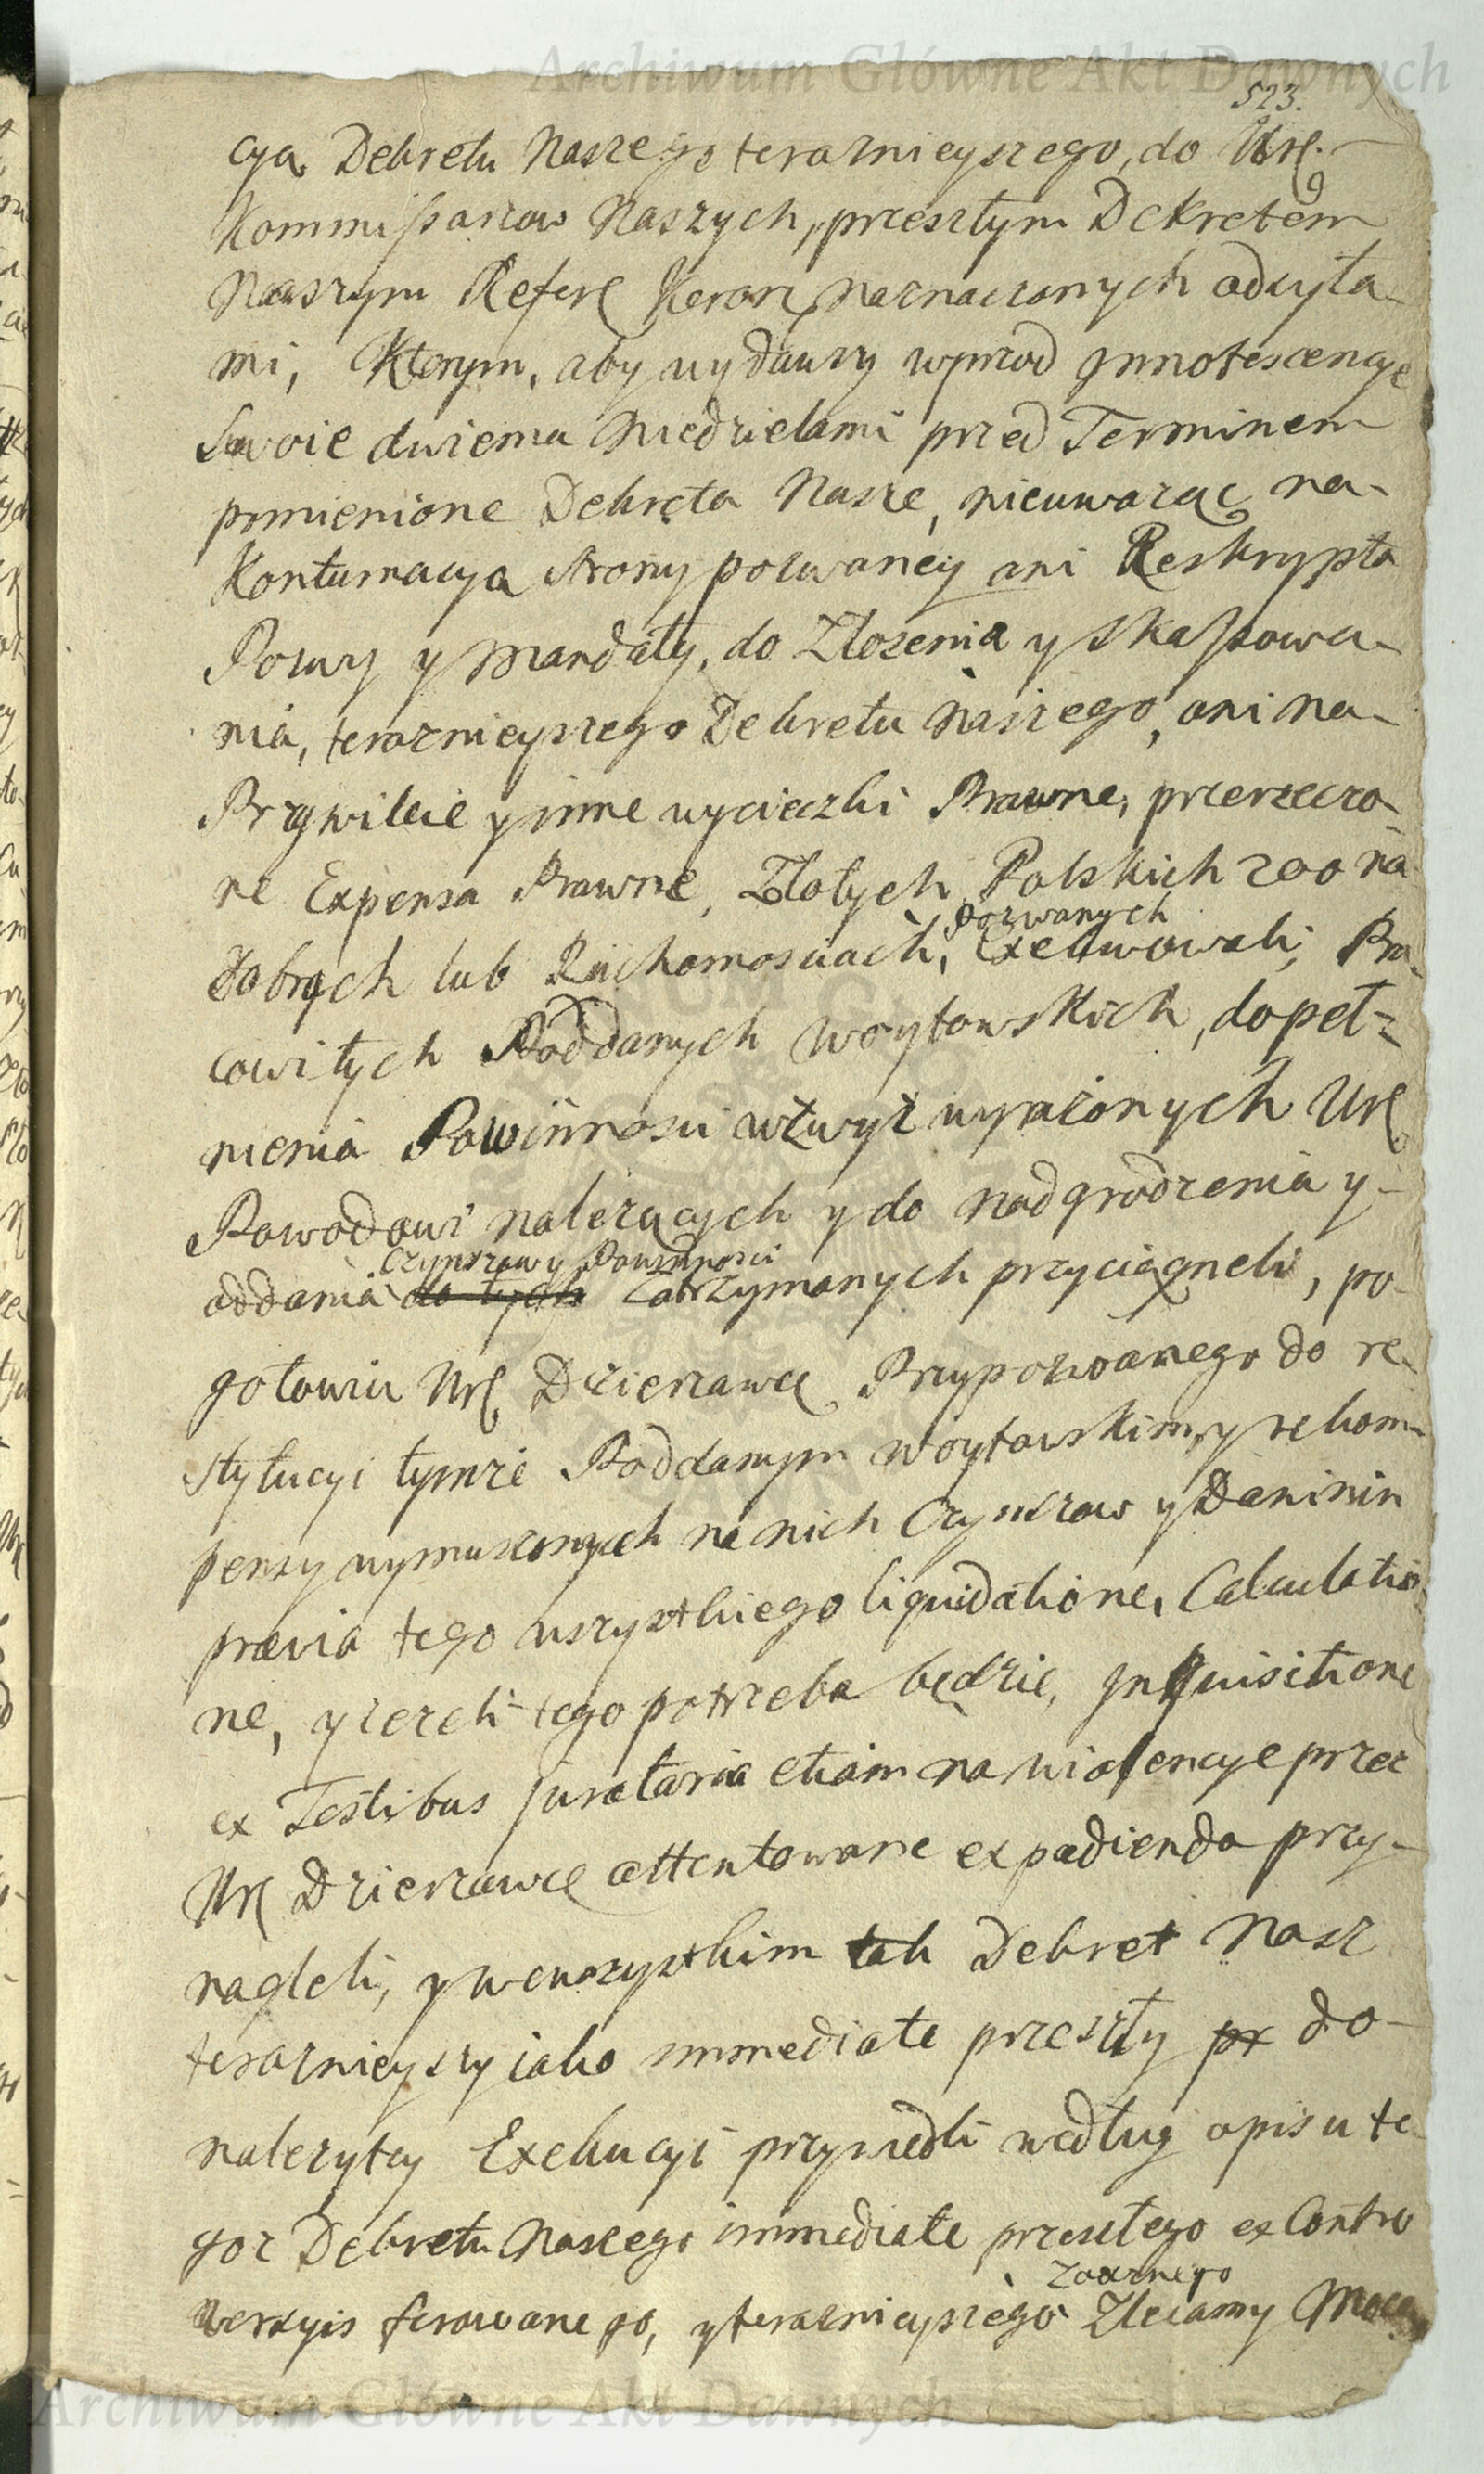 Archiwum Główne Akt Dawnych
523.
cya Dekretu Naszego teraznieyszego, do Ur.
Kommissarzow Naszych, przeszłym Dekretem
Naszym Refer naznaczonych odsyła-
mi, Ktorym, aby wydawszy wprzod Jnnotescencye
Swoie dwiema Niedzielami przed Terminem
pomienione Dekreta Nasze, nieuwazaiąc na-
Kontumacya strony pozwaney ani Reskrypta
Pozwy y Mandaty, do Złozenia y skassowa-
nia, teraznieyszego Dekretu Naszego, ani na-
Przywileie y inne wycieczki Prawne, przerzeczo-
ne Expensa Prawne, Złotych Polskich 200 na
Pozwanych
dobrach lub Ruchomosciach, Exekwowali, Pra-
cowitych Poddanych woytowskich, dopeł-
nienia Powinnosci wzwyż wyrazonych Ur
Powodowi nalezących y do nadgrodzenia y-
Czynszow y Powinnosci
oddania do tych zatrzymanych przyciągneli, po-
gotowiu Ur Dzierzawcę Przypozwanego do re-
stytucyi tymze Poddanym woytowskim, y rekom-
pensy wymuszonych na nich Czynszow y Daninin
prævia tego wszystkiego liquidatione, Calculatio-
ne, y iezeli tego potrzeba będzie, Jnquisitione
ex Testibus juratoria etiam na wiolencye przez
Ur Dzierzawcę attentowane expædienda przy-
nagleli, y we wszystkim tak Dekret Nasz
teraznieyszy iako immediate przeszły pr do-
nalezytey Exekucyi przywiedli według opisu te-
goz Dekretu Naszego immediate przeszłego ex Contro
Zaocznego
wersyis ferowanego, y teraznieyszego Zlecamy Mocą
Archiwum Główne Akt Dawnych